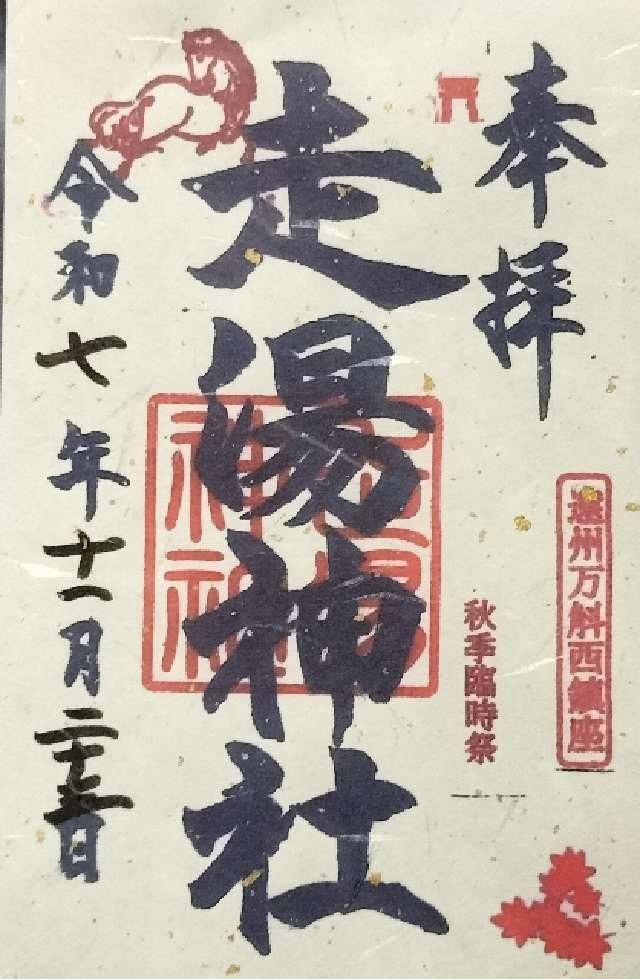 奉拝
遠州万斛西鎮座
秋季臨時祭
走湯神社
令和七年十一月二十三日